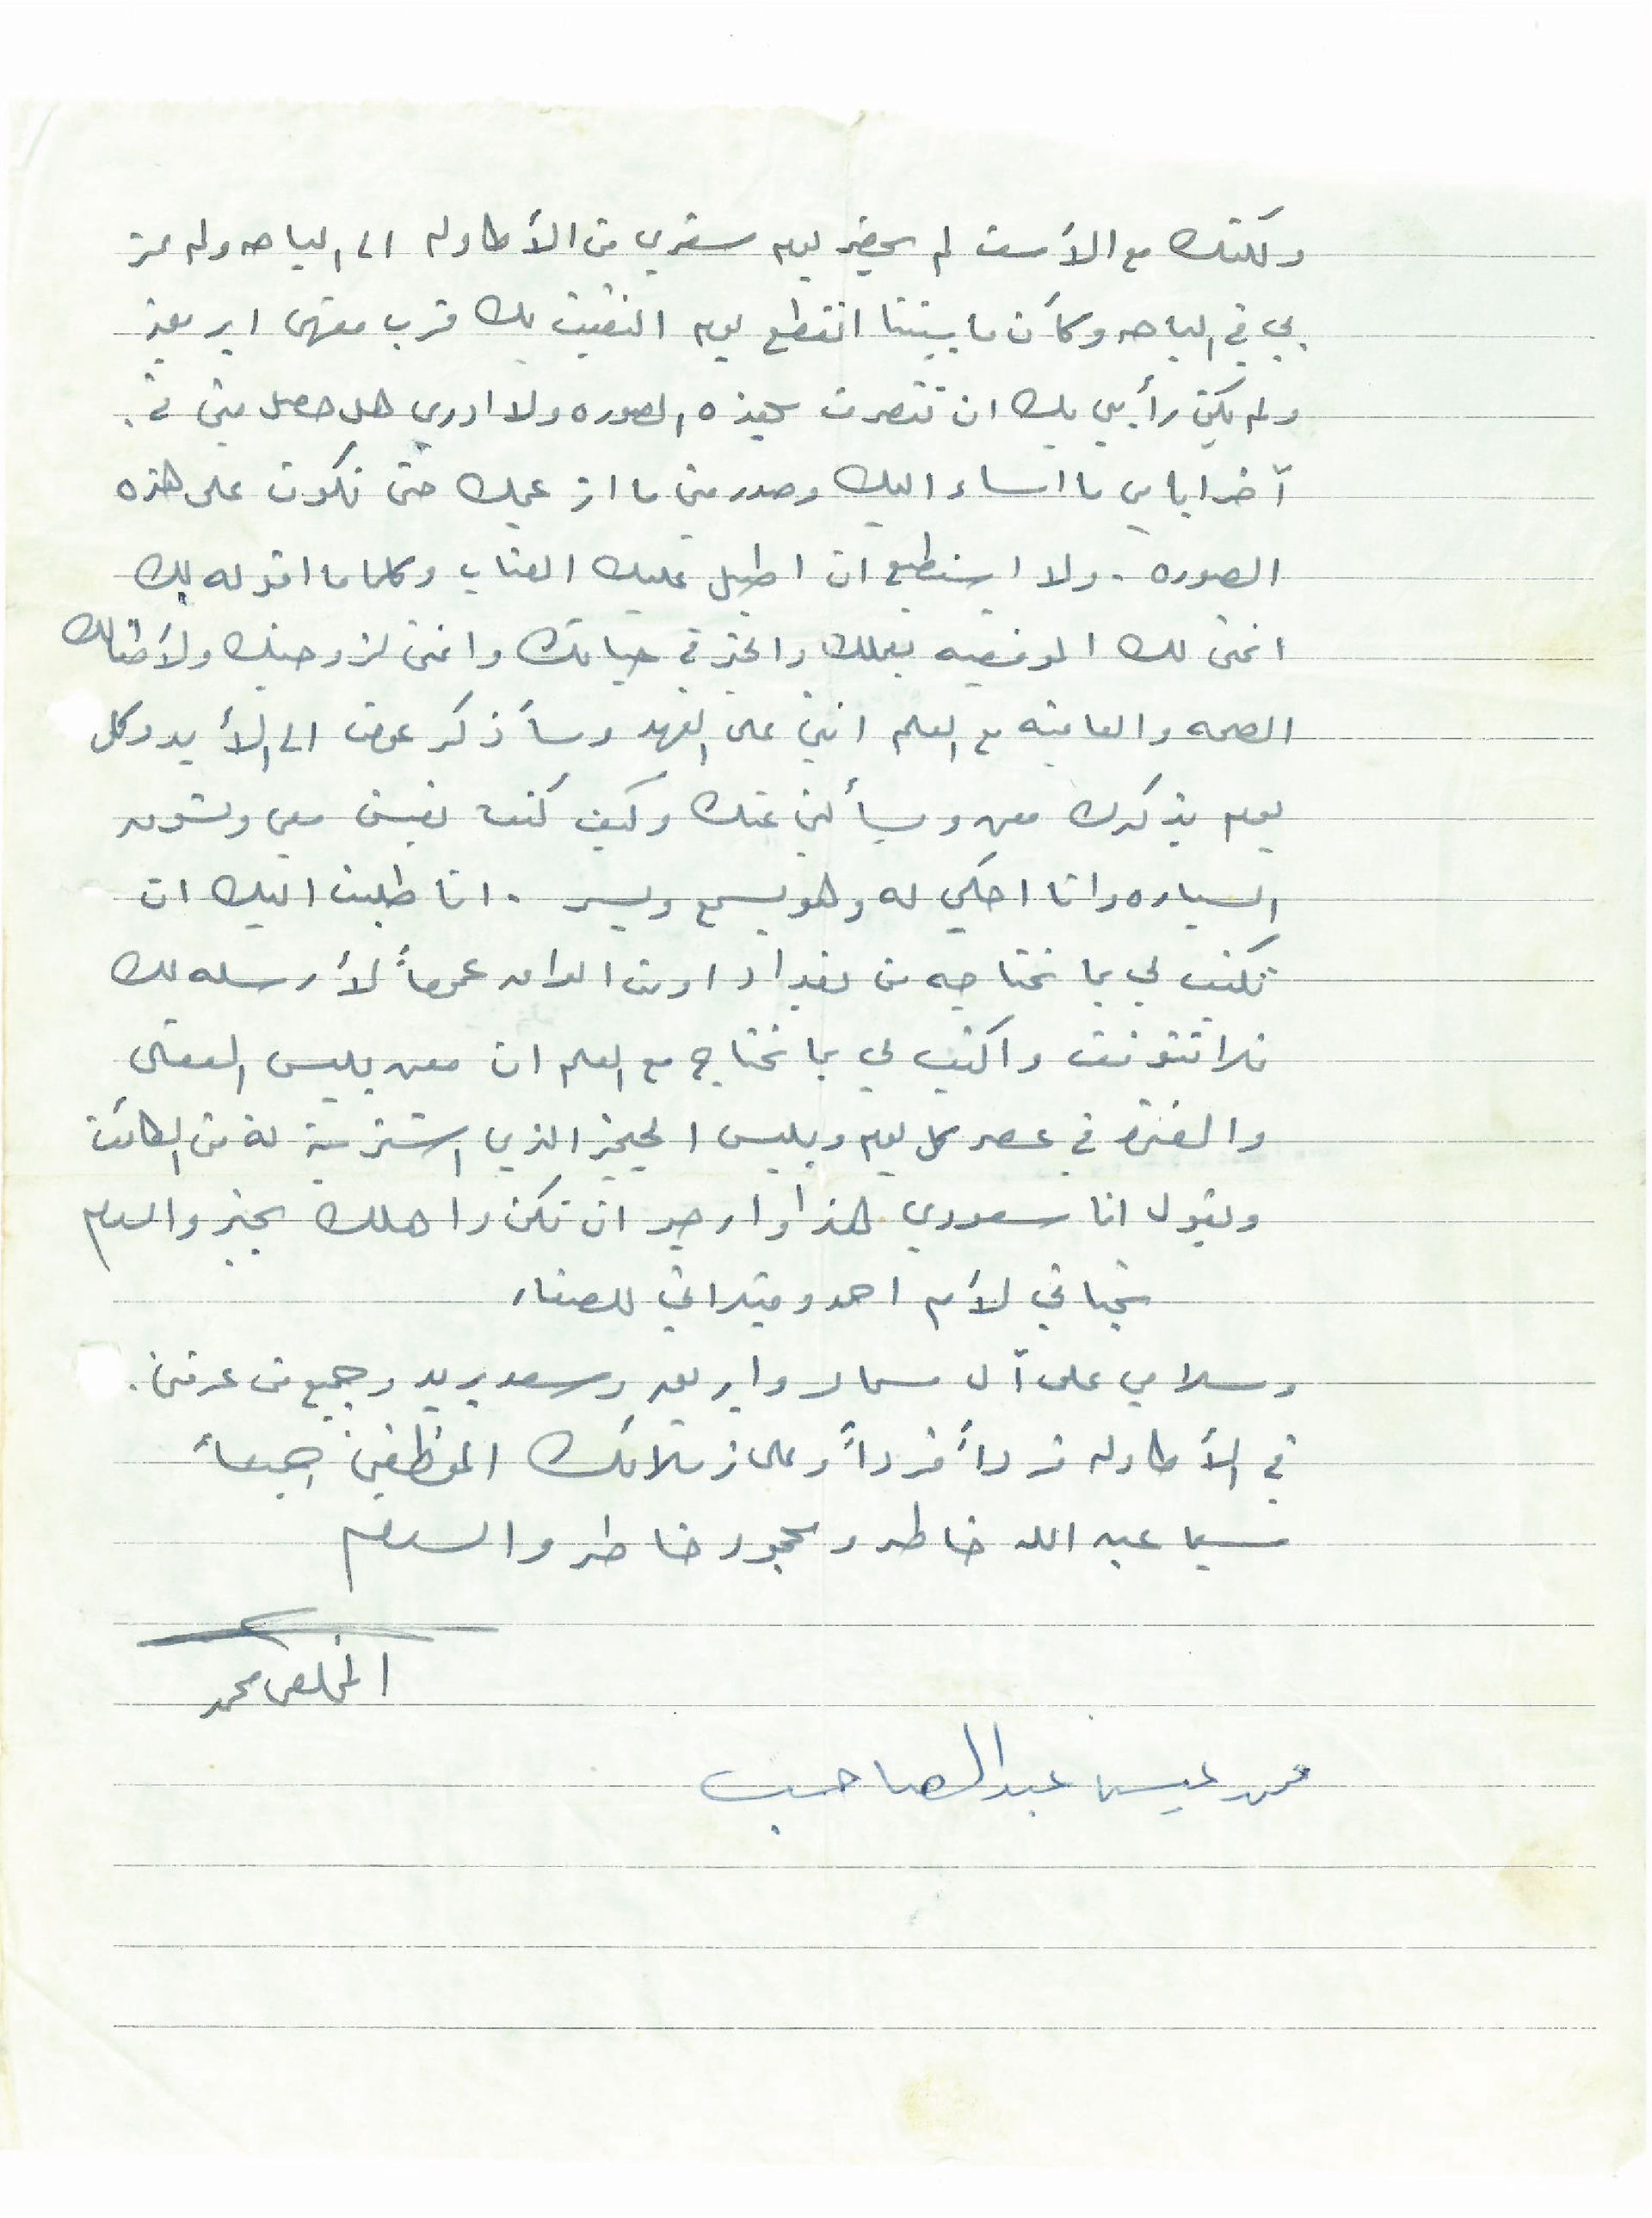 ولكنك مع الأسف لم تحضر يوم سفري من الأطاوله الى الباحه ولم تمر
بي في الباحه وكأن ما بيننا انقطع يوم التقيت بك قرب مقهى ابو
ولم يكن رأيي بك ان تتصرف بهذه الصوره ولا ادري هل حصل مني في
آخر ايامي ما اساء اليك وصدر مني ما ازعجك حتى تكون على هذه
الصوره . ولا استطيع ان اطيل عليك العتاب وكلما ما اقوله لك
اتمنى لك الموفقيه بعملك والخير في حياتك واتمنى لزوجتك ولأطفالك
الصحه والعافيه مع العلم انني على العهد وسأذكر عوض الى الأبد وكل
يوم يذكرك معن ويسألني عنك وكيف كنت تعيش معي وتسوق
السياره وانا احكي له وهو يسمع ويسر . انا طلبت اليك ان
تكتب لي بما تحتاجه من بغداد او من العراق عموماً لأرسله لك
فلا تتوقف واكتب لي بما تحتاج مع العلم ان معن يلبس العقال
والغتره في عصر كل يوم ويلبس الذي اشتريته له من الطائف
ويقول انا سعودي هذا وارجو ان تكن واهلك بخير والسلام
تحياتي لأم احمد وقبلاتي للصغار
وسلامي على آل مسمار وابو وسعد بريد وجميع من عرفني
في الأطاوله فرداً فرداً وعلى زملائك الموظفين جميعاً
سيما عبد الله خاطر و خاطر والسلام
المخلص محمد
محمد عيسى عبدالصاحب